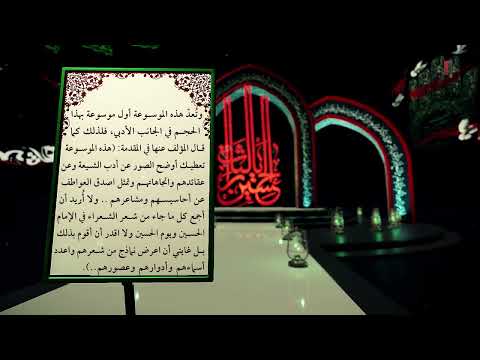 وتُعدّ هذه الموسوعة أول موسوعة بهذا
الحجم في الجانب الأدبي، فلذلك كما
قال المؤلف عنها في المقدمة: (هذه الموسوعة
تعطيك أوضح الصور عن أدب الشيعة وعن
عقائدهم واتجاهاتهم وتمثل اصدق العواطف
عن أحاسيسهم ومشاعرهم .. ولا أُريد أن
أجمع كل ما جاء من شعر الشعراء في الإمام
الحسين ويوم الحسين ولا اقدر أن أقوم بذلك
بل غايتي أن اعرض نماذج من شعرهم واعدد
أسماءهم وأدوارهم وعصورهم..).